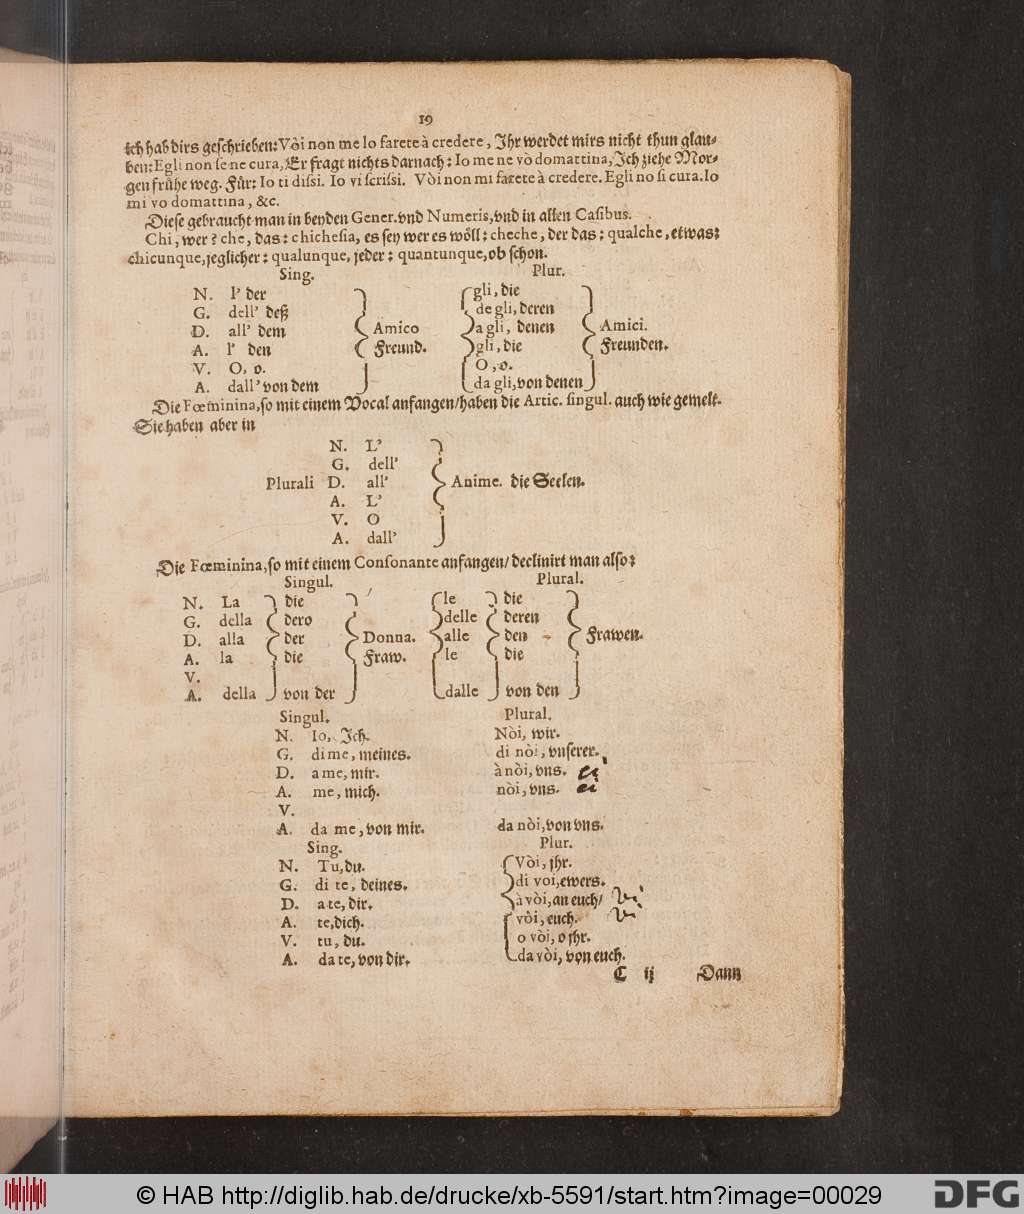 19
ich hab dirs geschrieben: Vòi non me lo farete à credere, Ihr werdet mirs nicht thun glau-
ben: Egli non se ne cura, Er fragt nichts darnach: Io me ne vo domattina, Ich ziehe Mor-
gen frühe weg. Für: Io ti dissi. Io vi scrissi. Vòi non mi farete à credere. Egli no si cura. Io
mi vo domattina, &c.
Diese gebraucht man in beyden Gener. vnd Numeris, vnd in allen Casibus.
Chi, wer? che, das: chichesia, es sey wer es wöll: cheche, der das: qualche, etwas:
chicunque, jeglicher: qualunque, jeder: quantunque, ob schon.
Sing. Plur.
N. l' der gli, die
G. dell' deß de gli, deren
D. all' dem Amico a gli, denen Amici.
A. l' den Freund. gli, die Freunden.
V. O, o. O, o.
A. dall' von dem da gli, von denen
Die Fœminina, so mit einem Vocal anfangen/ haben die Artic. singul. auch wie gemelt.
Sie haben aber in
N. L'
G. dell'
Plurali D. all' Anime. die Seelen.
A. L'
V. O
A. dall'
Die Fœminina, so mit einem Consonante anfangen/ declinirt man also:
Singul. Plural.
N. La die le die
G. della dero delle deren
D. alla der Donna. alle den Frawen.
A. la die Fraw. le die
V.
A. della von der dalle von den
Singul. Plural.
N. Io, Ich. Nòi, wir.
G. di me, meines. di nòi, vnserer.
D. a me, mir. à nòi, vns. ci
A. me, mich. nòi, vns. ci
V.
A. da me, von mir. da nòi, von vns.
Sing. Plur.
N. Tu, du. Vòi, jhr.
G. di te, deines. di voi, ewers.
D. a te, dir. à vòi, an euch/ vi
A. te, dich. vòi, euch. vi
V. tu, du. o vòi, o jhr.
A. da te, von dir. da vòi, von euch.
C ij Dann
© HAB http://diglib.hab.de/drucke/xb-5591/start.htm?image=00029
DFG